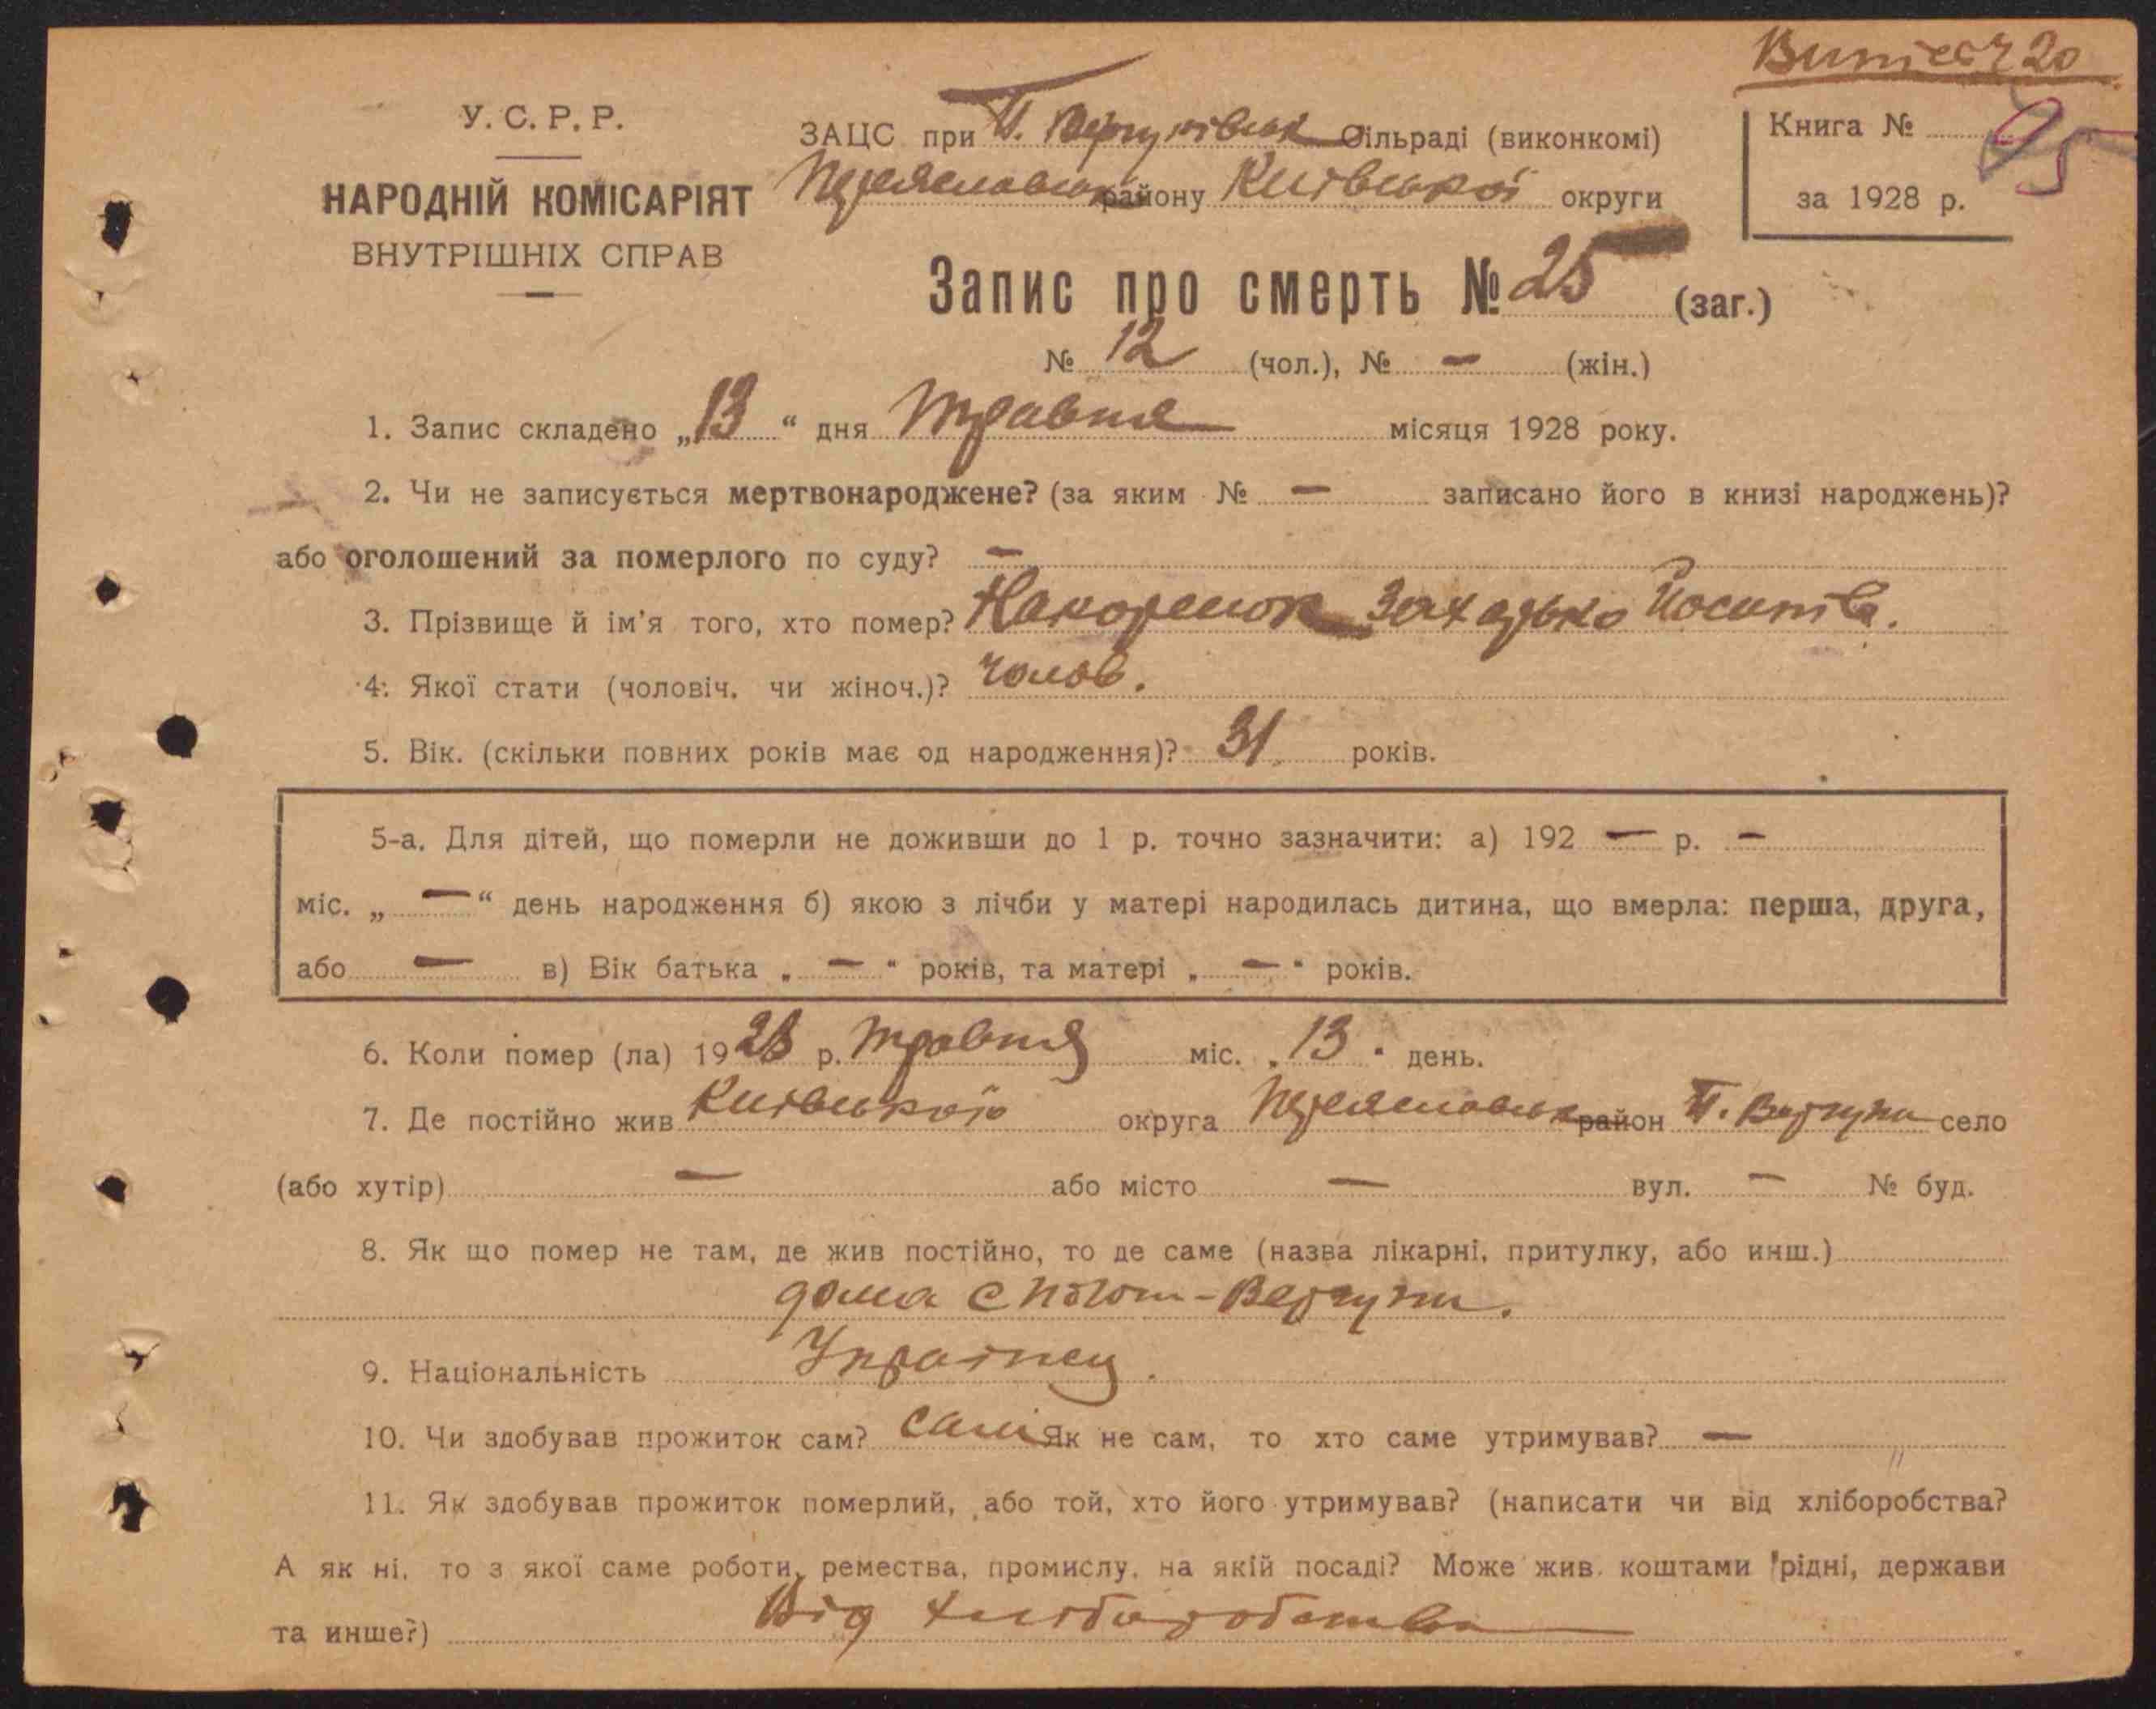 У. С. Р. Р.
НАРОДНІЙ КОМІСАРІЯТ
ВНУТРІШНІХ СПРАВ
ЗАЦС при П. Вергунівськ Сільраді (виконкомі)
Переяславськ району Київської округи
Книга №
за 1928 р.
Запис про смерть № 25 (заг.)
№ 12 (чол.), № — (жін.)
1. Запис складено „13“ дня травня місяця 1928 року.
2. Чи не записується мертвонароджене? (за яким № — записано його в книзі народжень)?
або оголошений за померлого по суду? —
3. Прізвище й ім'я того, хто помер?
4. Якої стати (чоловіч. чи жіноч.)? чолов.
5. Вік. (скільки повних років має од народження)? 31 років.
5-а. Для дітей, що померли не доживши до 1 р. точно зазначити: а) 192 — р. —
міс. „ — “ день народження б) якою з лічби у матері народилась дитина, що вмерла: перша, друга,
або — в) Вік батька „ — “ років, та матері „ — “ років.
6. Коли помер (ла) 1928 р. травня міс. „13“ день.
7. Де постійно жив Київської округа Переяславськ район П. Вергуни село
(або хутір) — або місто — вул. — № буд.
8. Як що помер не там, де жив постійно, то де саме (назва лікарні, притулку, або инш.)
дома с Вергуни.
9. Національність Українец.
10. Чи здобував прожиток сам? сам Як не сам, то хто саме утримував? —
11. Як здобував прожиток померлий, або той, хто його утримував? (написати чи від хліборобства?
А як ні, то з якої саме роботи, ремества, промислу, на якій посаді? Може жив коштами рідні, держави
та инше?) Від хліборобства